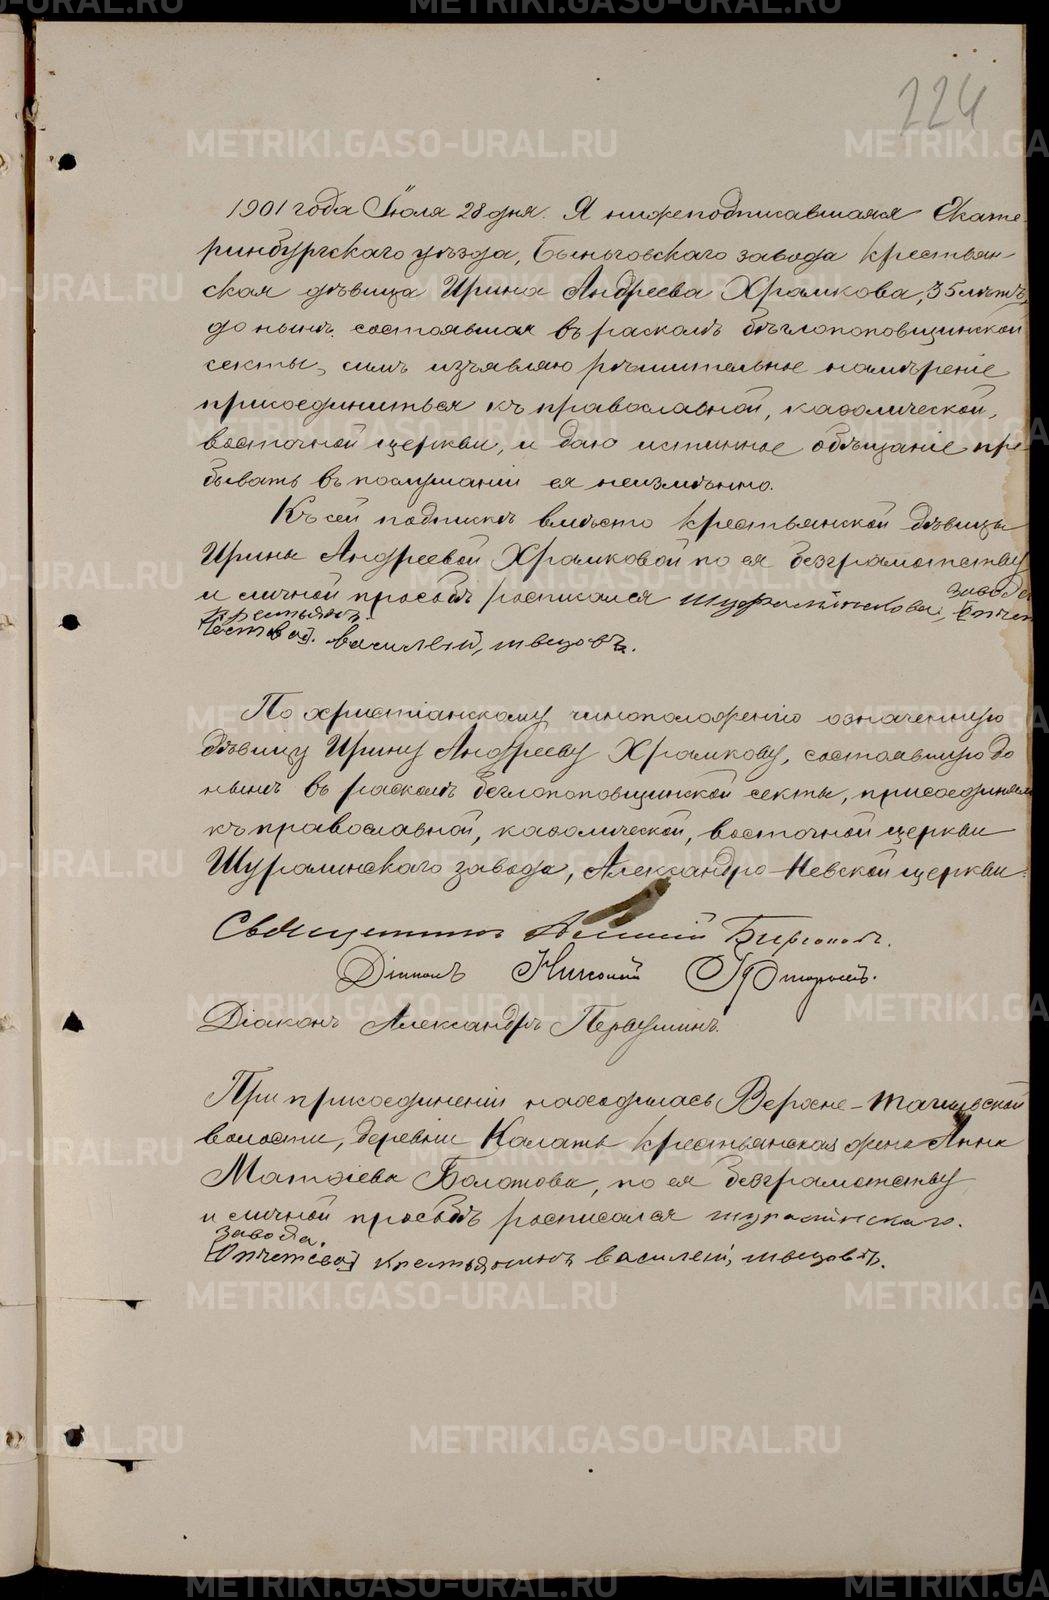 224
1901 года Іюля 28 дня. Я нижеподписавшаяся Екате-
ринбургскаго уѣзда, Быньговскаго завода крестьян-
ская дѣвица Ирина Андреева Храмкова, 35 лѣтъ,
до нынѣ состоявшая въ расколѣ бѣглопоповщинской
секты, симъ изъявляю рѣшительное намѣреніе
присоединиться къ православной, каѳолической,
восточной церкви, и даю истинное обѣщаніе пре-
бывать въ послушаніи ея неизмѣнно.
Къ сей подпискѣ вмѣсто крестьянской дѣвицы
Ирины Андреевой Храмковой по ея безграмотству
и личной просьбѣ росписался
крестьянъ.
василей, швецовъ.
По христіанскому чиноположенію означенную
дѣвицу Ирину Андрееву Храмкову, состоявшую до
нынѣ въ расколѣ беглопоповщинской секты, присоединили
къ православной, каѳолической, восточной церкви
Шуралинскаго завода, Александро-Невской церкви:
Священникъ
Діаконъ Николай
Діаконъ Александръ Первушинъ.
При присоединеніи находилась Верхне-Тагильской
волости, деревни Калаты крестьянская жена Анна
Матѳіева Болотова, по ея безграмотству
и личной просьбѣ росписался шуралинскаго.
завода.
крестьянинъ василей, швецовъ.